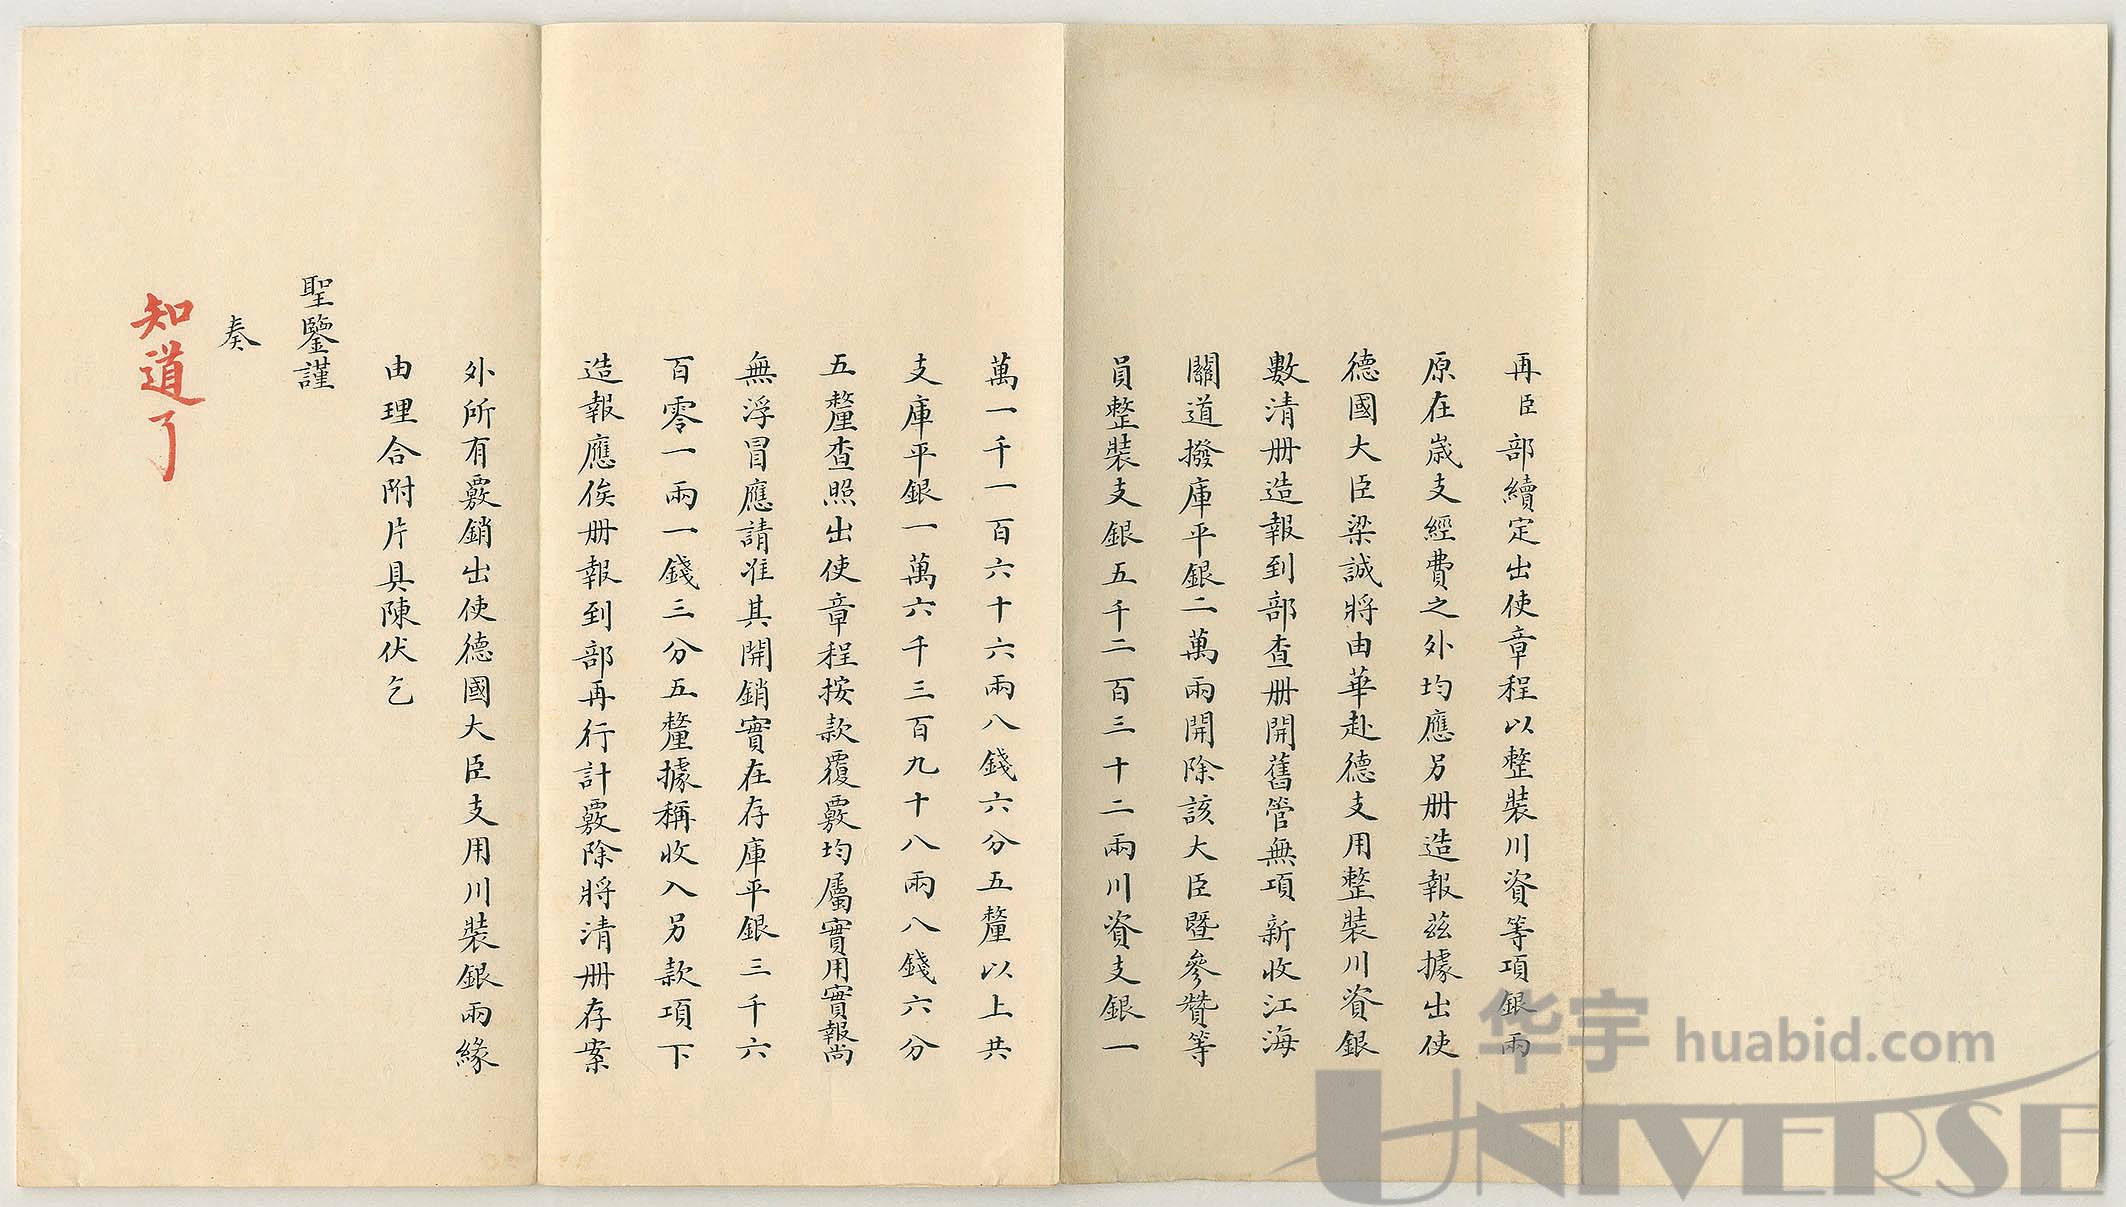 再臣部續定出使章程以整裝川資等項銀兩
原在歲支經費之外均應另册造報茲據出使
德國大臣梁誠將由華赴德支用整裝川資銀
數清册造報到部查册開舊管無項新收江海
關道撥庫平銀二萬兩開除該大臣暨參贊等
員整裝支銀五千二百三十二兩川資支銀一
萬一千一百六十六兩八錢六分五釐以上共
支庫平銀一萬六千三百九十八兩八錢六分
五釐查照出使章程按款覆覈均屬實用實報尚
無浮冒應請准其開銷實在存庫平銀三千六
百零一兩一錢三分五釐據稱收入另款項下
造報應俟册報到部再行計覈除將清册存案
外所有覈銷出使德國大臣支用川裝銀兩緣
由理合附片具陳伏乞
聖鑒謹
奏
知道了
华宇 huabid.com
UNIVERSE